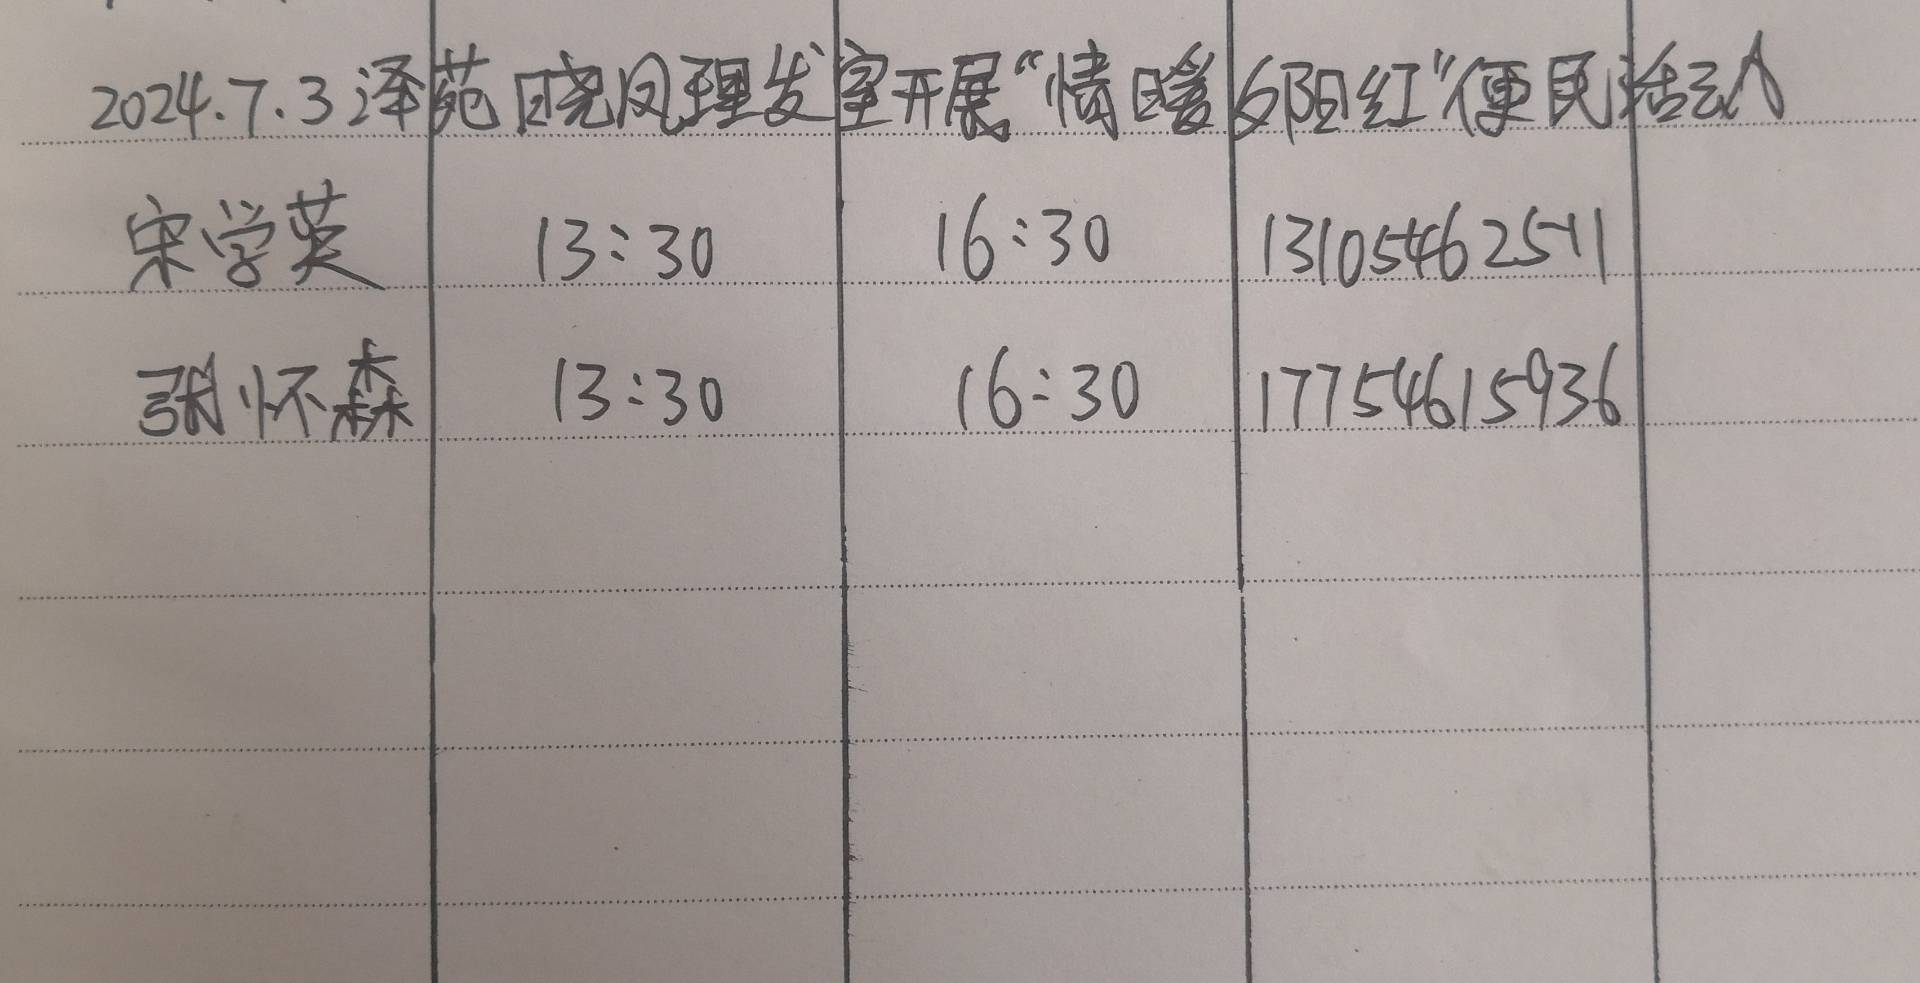 2024.7.3泽苑晓凤理发室开展“情暖夕阳红”便民活动
宋学英 13:30 16:30 13105462511
张怀森 13:30 16:30 17754615936